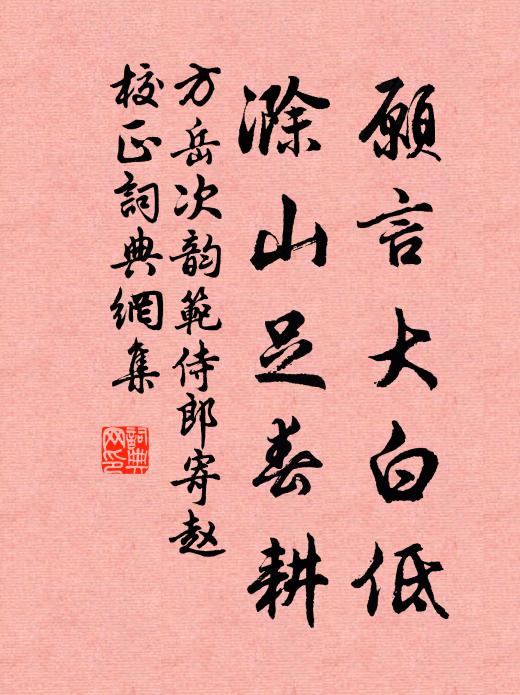 願言大白低
滁山足春耕
方岳次韵範侍郎寄赵
校正詞典網集
詞典網印